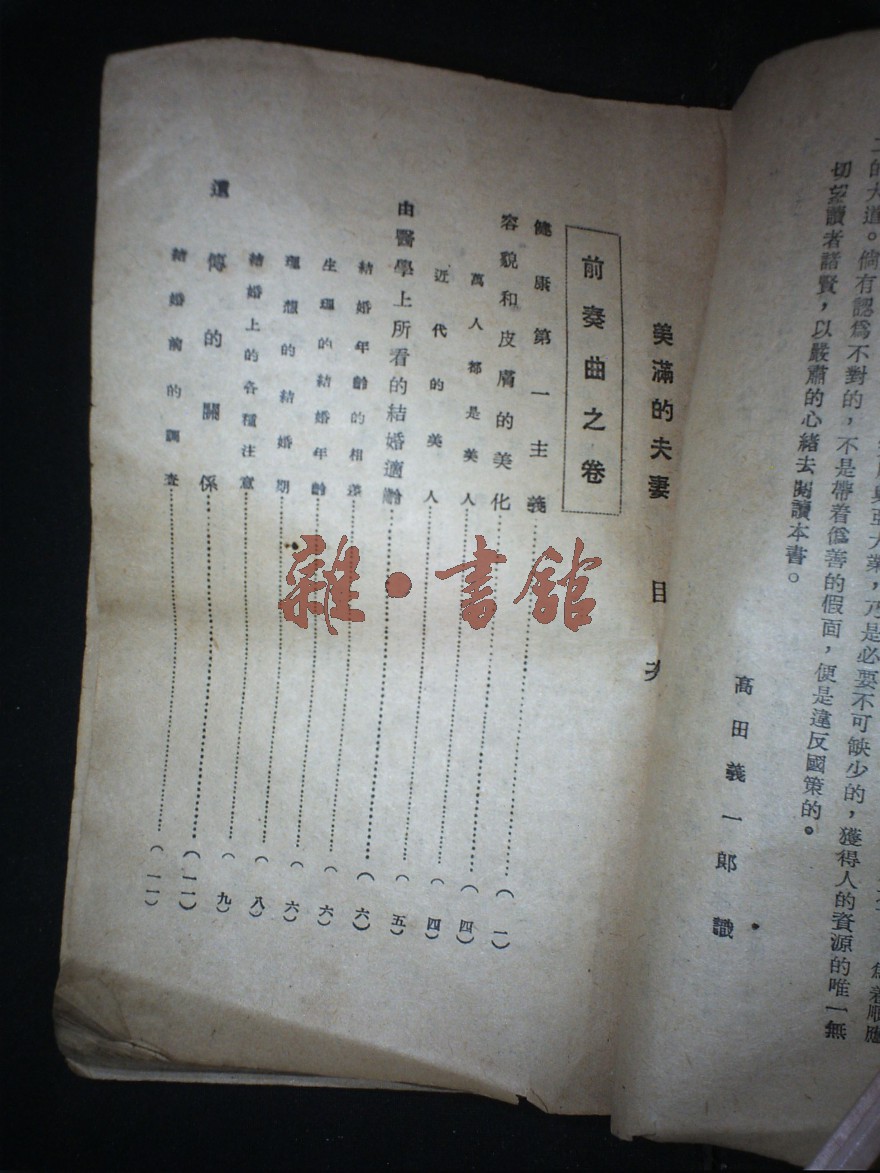 爲着順應
興亞大業，乃是必要不可缺少的，獲得人的資源的唯一無
二的大道。倘有認爲不對的，不是帶着僞善的假面，便是違反國策的。
切望讀者諸賢，以嚴肅的心緒去閱讀本書。
高田義一郎 識
美滿的夫妻 目次
前奏曲之卷
健康第一主義……（一）
容貌和皮膚的美化……（四）
萬人都是美人……（四）
近代的美人……（五）
由醫學上所看的結婚適齡……（六）
結婚年齡的相差……（六）
生理的結婚年齡……（六）
理想的結婚期……（八）
結婚上的各種注意……（九）
遺傳的關係……（一一）
結婚前的調查……（一一）
雜·書舘